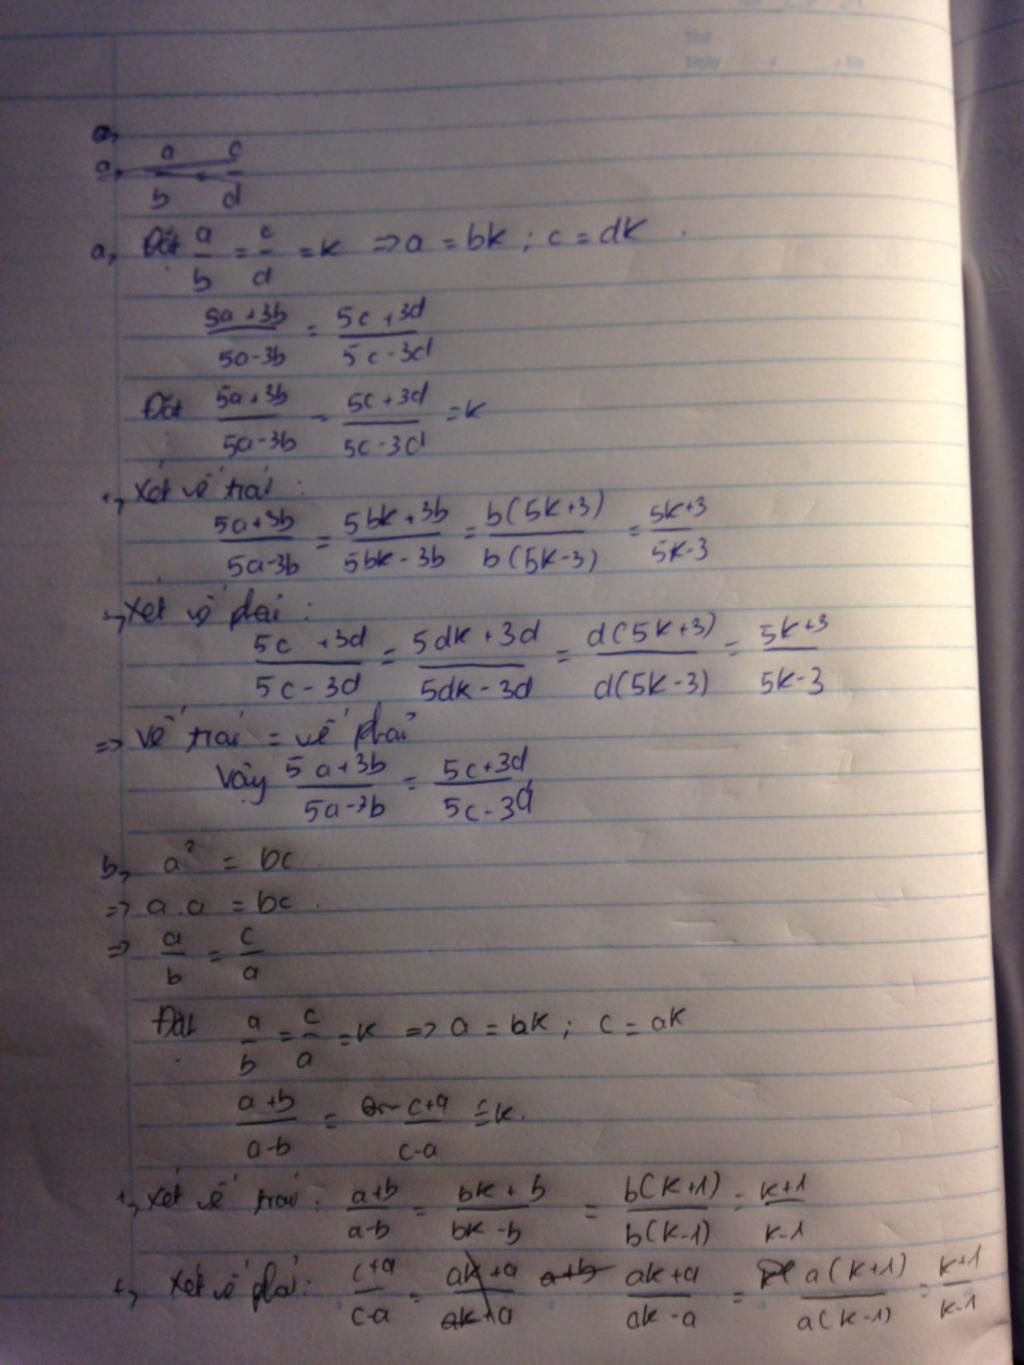 Thứ
Ngày / /
a,
a, a/b = c/d
a, Đặt a/b = c/d = k => a = bk ; c = dk .
5a+3b/5a-3b = 5c+3d/5c-3d
Đặt 5a+3b/5a-3b = 5c+3d/5c-3d = k
+, Xét vế trái :
5a+3b/5a-3b = 5bk+3b/5bk-3b = b(5k+3)/b(5k-3) = 5k+3/5k-3
+, Xét vế phải :
5c+3d/5c-3d = 5dk+3d/5dk-3d = d(5k+3)/d(5k-3) = 5k+3/5k-3
=> Vế trái = vế phải
Vậy 5a+3b/5a-3b = 5c+3d/5c-3d
b, a² = bc
=> a.a = bc .
=> a/b = c/a
Đặt a/b = c/a = k => a = bk ; c = ak
a+b/a-b = c+a/c-a = k .
+, Xét vế trái : a+b/a-b = bk+b/bk-b = b(k+1)/b(k-1) = k+1/k-1
+, Xét vế phải : c+a/c-a = ak+a/ak+a a+b ak+a/ak-a = a(k+1)/a(k-1) = k+1/k-1